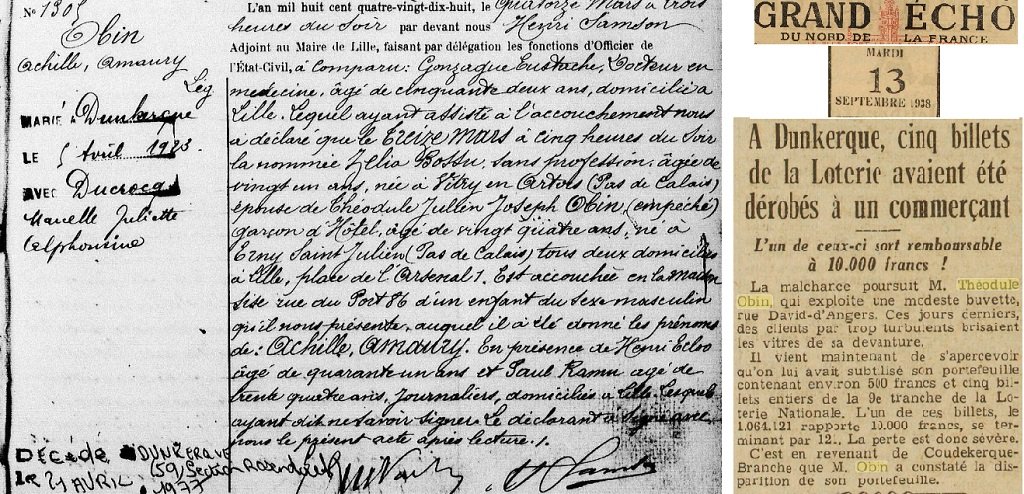 No 1305
Obin
Achille, Amaury
Lég.
MARIÉ à Dunkerque
LE 5 Avril 1923.
AVEC Ducrocq
Marcelle Juliette
Alphonsine
L'an mil huit cent quatre-vingt-dix-huit, le Quatorze Mars à trois
heures du Soir par devant nous Henri Samson
Adjoint au Maire de Lille, faisant par délégation les fonctions d'Officier de
l'État-Civil, a comparu: Gonzague Eustache, Docteur en
médecine, âgé de cinquante deux ans, domicilié à
Lille. Lequel ayant assisté à l'accouchement nous
a déclaré que le Treize Mars à cinq heures du Soir
la nommée Zélia Bossu, sans profession, âgée de
vingt un ans, née à Vitry en Artois (Pas de Calais)
épouse de Théodule Jullien Joseph Obin (empêché)
garçon d'Hôtel, âgé de vingt quatre ans, né à
Erny Saint Julien (Pas de Calais) tous deux domiciliés
à Lille, place de l'Arsenal 1. Est accouchée en la maison
sise rue du Port 86 d'un enfant du sexe masculin
qu'il nous présente, auquel il a été donné les prénoms
de: Achille, Amaury. En présence de Henri
âgé de quarante un ans et Paul Ramu âgé de
trente quatre ans, journaliers, domiciliés à Lille. Lesquels
ayant dit ne savoir signer. Le déclarant a signé avec
nous le présent acte après lecture.
DÉCÉDÉ à DUNKERQUE
(59) Section Rosendael
le 21 AVRIL 1977
GRAND ÉCHO
DU NORD DE LA FRANCE
MARDI
13
SEPTEMBRE 1938
A Dunkerque, cinq billets
de la Loterie avaient été
dérobés à un commerçant
L'un de ceux-ci sort remboursable
à 10.000 francs !
La malchance poursuit M. Théodule
Obin, qui exploite une modeste buvette,
rue David-d'Angers. Ces jours derniers,
des clients par trop turbulents brisaient
les vitres de sa devanture.
Il vient maintenant de s'apercevoir
qu'on lui avait subtilisé son portefeuille
contenant environ 500 francs et cinq bil-
lets entiers de la 9e tranche de la Lo-
terie Nationale. L'un de ces billets, le
1.064.121 rapporte 10.000 francs, se ter-
minant par 121. La perte est donc sévère.
C'est en revenant de Coudekerque-
Branche que M. Obin a constaté la dis-
parition de son portefeuille.